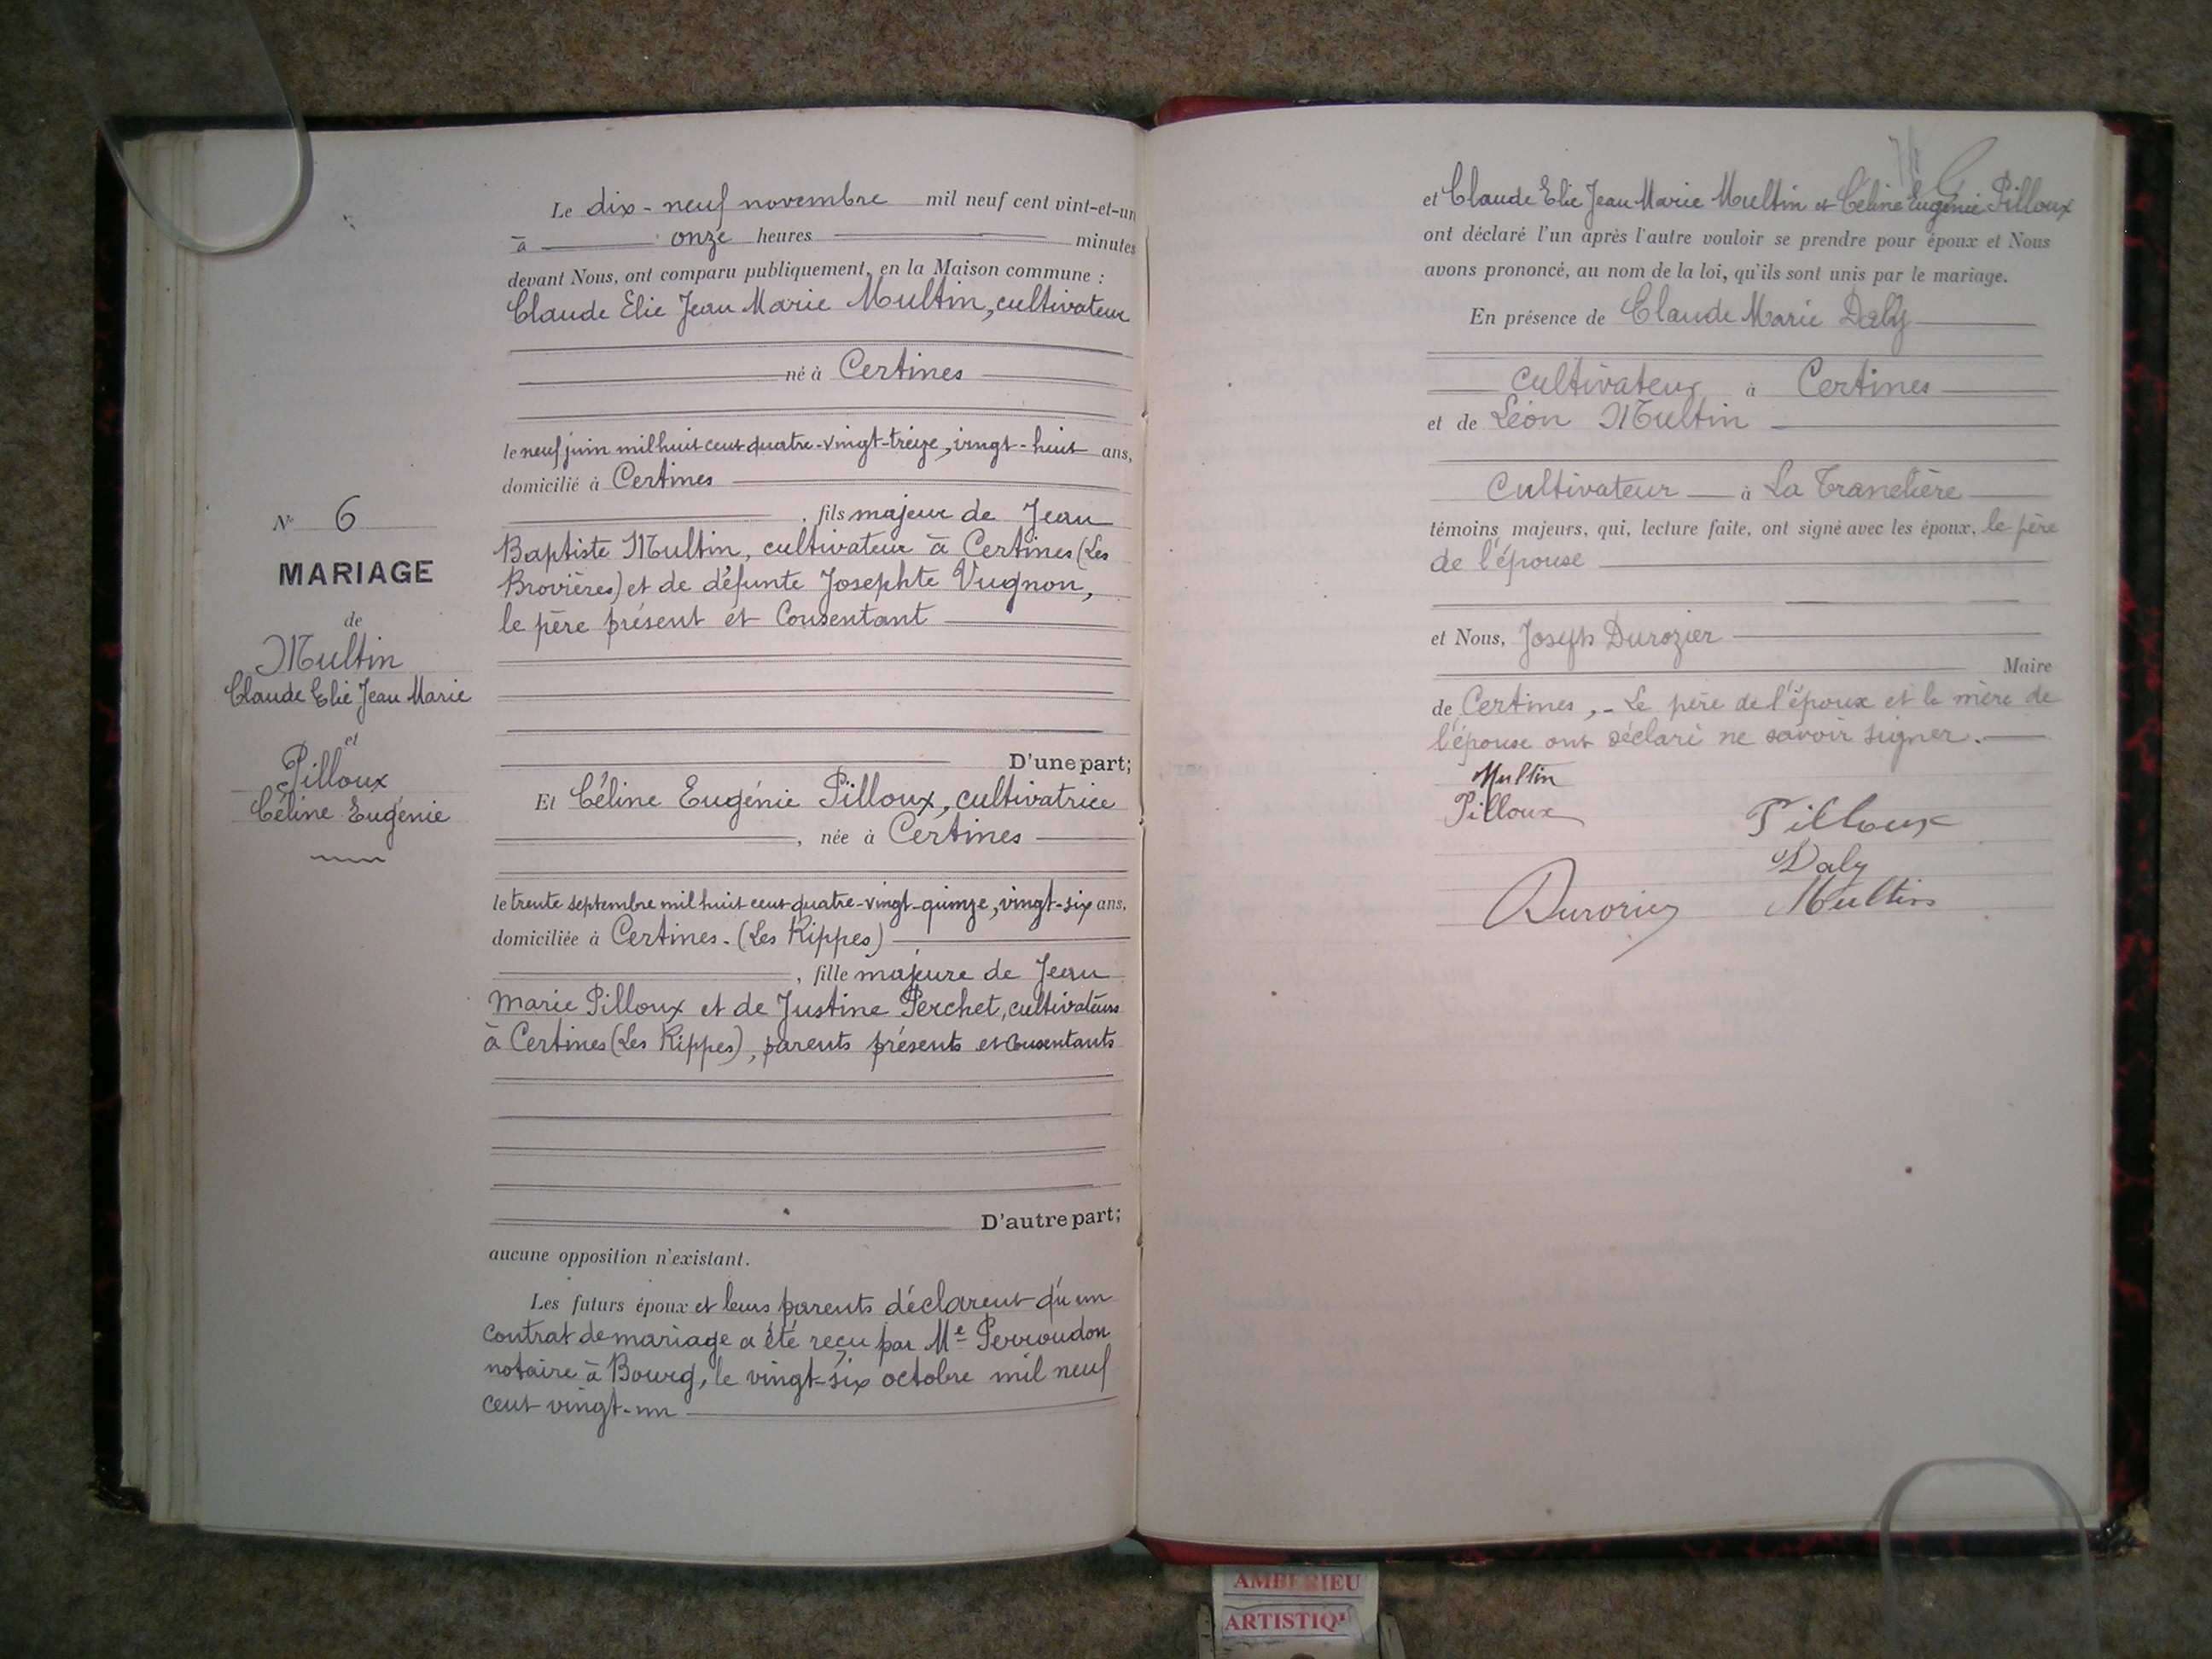 Le dix-neuf novembre mil neuf cent vint-et-un
à onze heures minutes
devant Nous, ont comparu publiquement, en la Maison commune :
Claude Elie Jean Marie Multin, cultivateur
né à Certines
le neuf juin mil huit cent quatre-vingt-treize, vingt-huit ans,
domicilié à Certines
, fils majeur de Jean
Baptiste Multin, cultivateur à Certines (Les
Brovières) et de défunte Josephte Vugnon,
le père présent et Consentant
D'une part;
N° 6
MARIAGE
de
Multin
Claude Elie Jean Marie
et
Pilloux
Céline Eugénie
Et Céline Eugénie Pilloux, cultivatrice
, née à Certines
le trente septembre mil huit cent quatre-vingt-quinze, vingt-six ans,
domiciliée à Certines - (Les Rippes)
, fille majeure de Jean
Marie Pilloux et de Justine Perchet, cultivateurs
à Certines (Les Rippes), parents présents et consentants
D'autre part;
aucune opposition n'existant.
Les futurs époux et leurs parents déclarent qu'un
contrat de mariage a été reçu par Me Perroudon
notaire à Bourg, le vingt-six octobre mil neuf
cent vingt-un
et Claude Elie Jean Marie Multin et Céline Eugénie Pilloux
ont déclaré l'un après l'autre vouloir se prendre pour époux et Nous
avons prononcé, au nom de la loi, qu'ils sont unis par le mariage.
En présence de Claude Marie Daly
Cultivateur à Certines
et de Léon Multin
Cultivateur à La Tranclière
témoins majeurs, qui, lecture faite, ont signé avec les époux, le père
de l'épouse
et Nous, Joseph Durozier
Maire
de Certines, - Le père de l'époux et la mère de
l'épouse ont déclaré ne savoir signer.
Multin
Pilloux Pilloux
Daly
Durozier Multin
AMBERIEU
ARTISTIQ